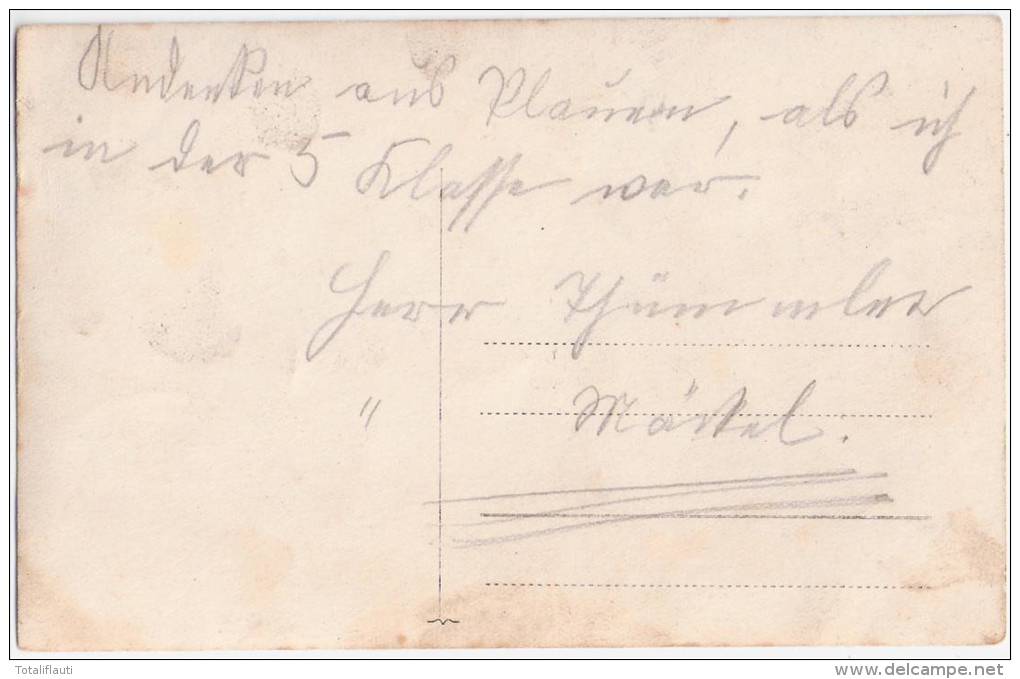 Andenken aus Plauen, als ich
in der 5 Klasse war.
Herr Thümmler
" Märkel.
Totaliflauti
www.delcampe.net